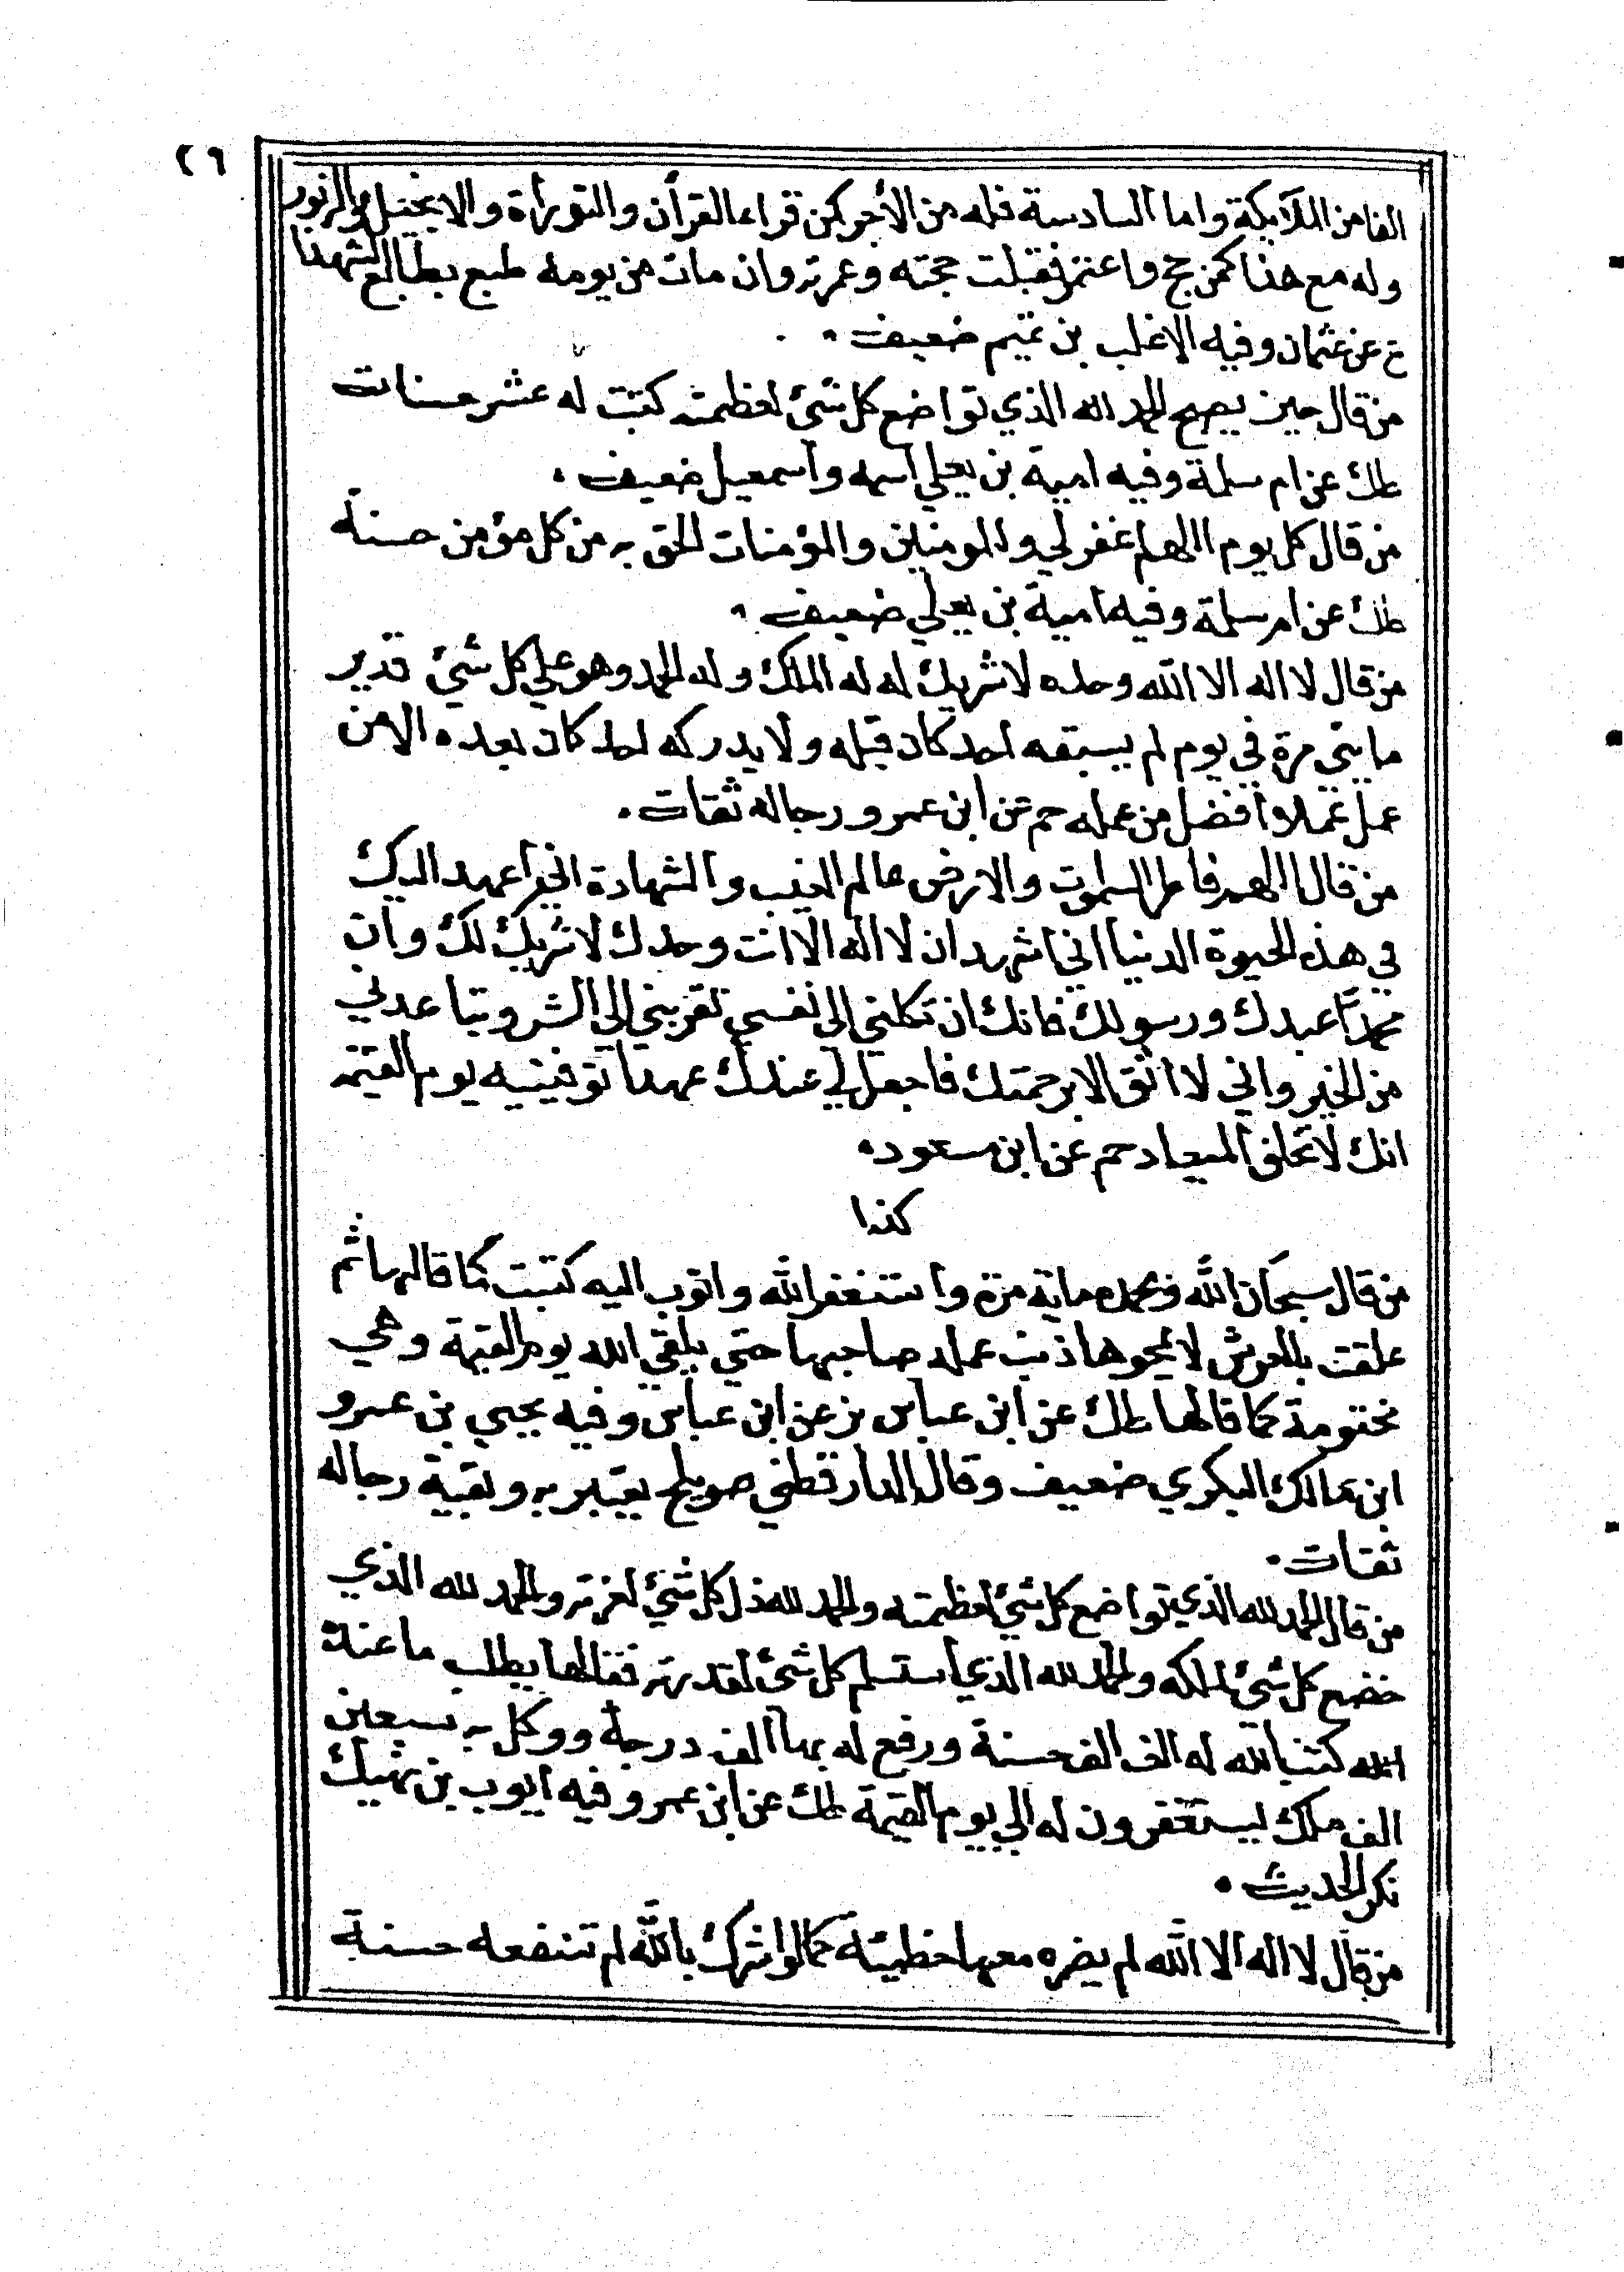 ٢٦
الفا من الملآيكة واما السادسة فله من الأجر كمن قراء القرآن والتورأة والانجيل والزبور
وله مع هذا كمن حج واعتمر فقبلت حجته وعمرته وان مات من يومه طبع بطابع الشهدا
ع عن عثمان وفيه الاغلب بن تميم ضعيف
من قال حين يصبح الحمد لله الذي تواضع كل شئ لعظمته كتبت له عشر حسنات
طك عن ام سلمة وفيه امية بن يعلي اسمه واسمعيل ضعيف
من قال كل يوم اللهم اغفر لي وللمومنين والمؤمنات الحق به من كل مؤمن حسنة
طك عن ام سلمة وفيه امية بن يعلي ضعيف
من قال لا اله الا الله وحده لا شريك له له الملك وله الحمد وهو علي كل شئ قدير
مايتي مرة في يوم لم يسبقه احد كان قبله ولا يدركه احد كان بعده الا من
عمل عملا افضل من عمله حم عن ابن عمرو رجاله ثقات
من قال اللهم فاطر السموت والارض عالم الغيب والشهادة اني اعهد اليك
في هذه الحيوة الدنيا اني اشهد ان لا اله الا انت وحدك لا شريك لك وان
محمدا عبدك ورسولك فانك ان تكلني الى نفسي تقربني الي الشر وتباعدني
من الخير واني لا اثق الا برحمتك فاجعل لي عندك عهدا توفينيه يوم القيمة
انك لا تخلف الميعاد حم عن ابن مسعود
كذا
من قال سبحان الله وبحمده ماية مرة واستغفر الله واتوب اليه كتبت كما قالها ثم
علقت بالعرش لا يمحوها ذنب عمله صاحبها حتي يلقي الله يوم القيمة وهي
مختومة كما قالها طك عن ابن عباس بز عن ابن عباس وفيه يحيي بن عمرو
ابن مالك البكري ضعيف وقال الدارقطني صويلح يعتبر به وبقية رجاله
ثقات
من قال الحمد لله الذي تواضع كل شئ لعظمته والحمد لله ذل كل شئ لعزته والحمد لله الذي
خضع كل شئ لملكه والحمد لله الذي استسلم كل شئ لقدرته فقالها يطلب ما عند
الله كتب الله له الف الف حسنة ورفع له بها الف درجة ووكل به سبعين
الف ملك ليستغفرون له الي يوم القيمة طك عن ابن عمر وفيه ايوب بن نهيك
نكر الحديث
من قال لا اله الا الله لم يضره معها خطيئة كما لو اشرك بالله لم تنفعه حسنة